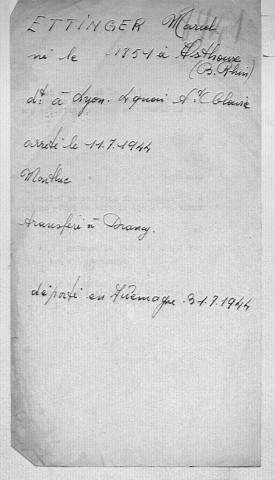 ETTINGER Marcel
né le 1854 à Asthouse
(B. Rhin)
dt. à Lyon. 4 quai St Claire
arrêté le 11.7.1944
Montluc
transféré à Drancy.
déporté en Allemagne 31.7.1944